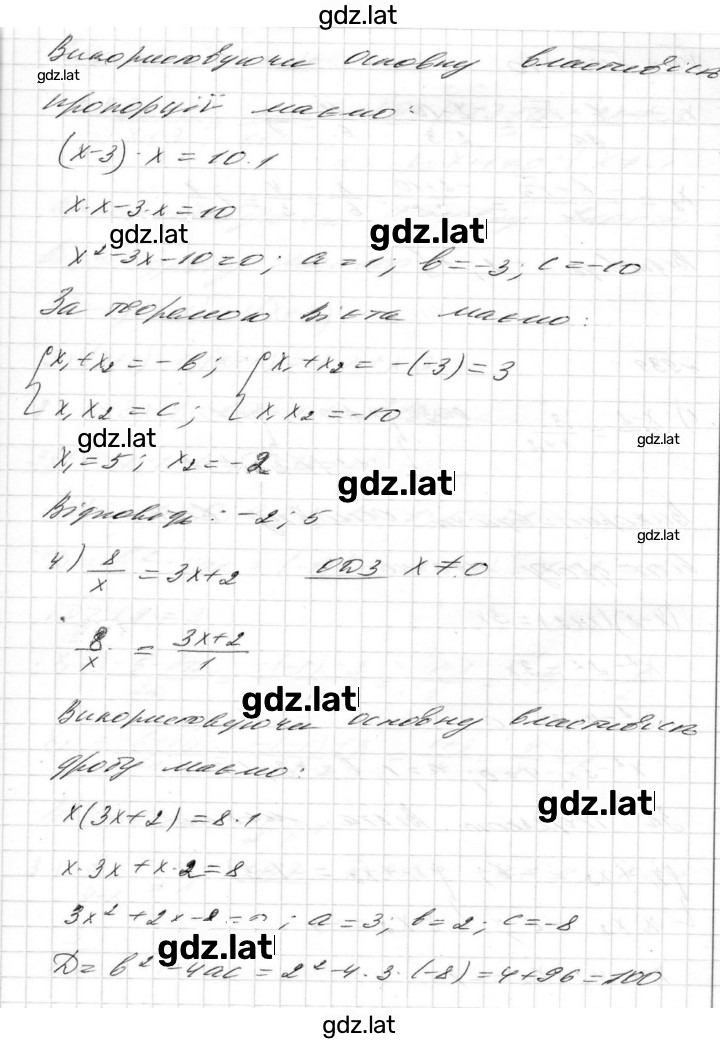 gdz.lat
Використовуючи основну властивість
gdz.lat
пропорції маємо:
(x-3) · x = 10 · 1
x · x - 3 · x = 10
gdz.lat
gdz.lat
x² - 3x - 10 = 0; a = 1; b = -3; c = -10
За теоремою Вієта маємо:
{ x₁ + x₂ = -b; { x₁ + x₂ = -(-3) = 3
x₁ x₂ = c; x₁ x₂ = -10
gdz.lat
gdz.lat
x₁ = 5; x₂ = -2
gdz.lat
Відповідь: -2; 5
gdz.lat
4) 8/x = 3x+2 ОДЗ x ≠ 0
8/x = (3x+2)/1
gdz.lat
Використовуючи основну властивість
дробу маємо:
gdz.lat
x(3x+2) = 8 · 1
x · 3x + x · 2 = 8
3x² + 2x - 8 = 0; a = 3; b = 2; c = -8
gdz.lat
D = b² - 4ac = 2² - 4 · 3 · (-8) = 4 + 96 = 100
gdz.lat